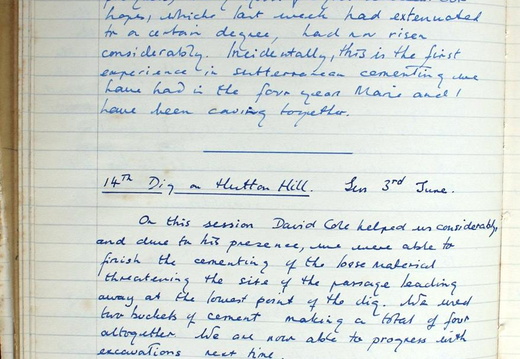 hopes, which last week had extenuated
to a certain degree, had now risen
considerably. Incidentally, this is the first
experience in subterranean cementing we
have had in the four years Marie and I
have been caving together.
14th Dig on Hutton Hill. Sun 3rd June.
On this session David Cole helped us considerably,
and due to his presence, we were able to
finish the cementing of the loose material
threatening the site of the passage leading
away at the lowest point of the dig. We used
two buckets of cement making a total of four
altogether. We are now able to progress with
excavations next time.